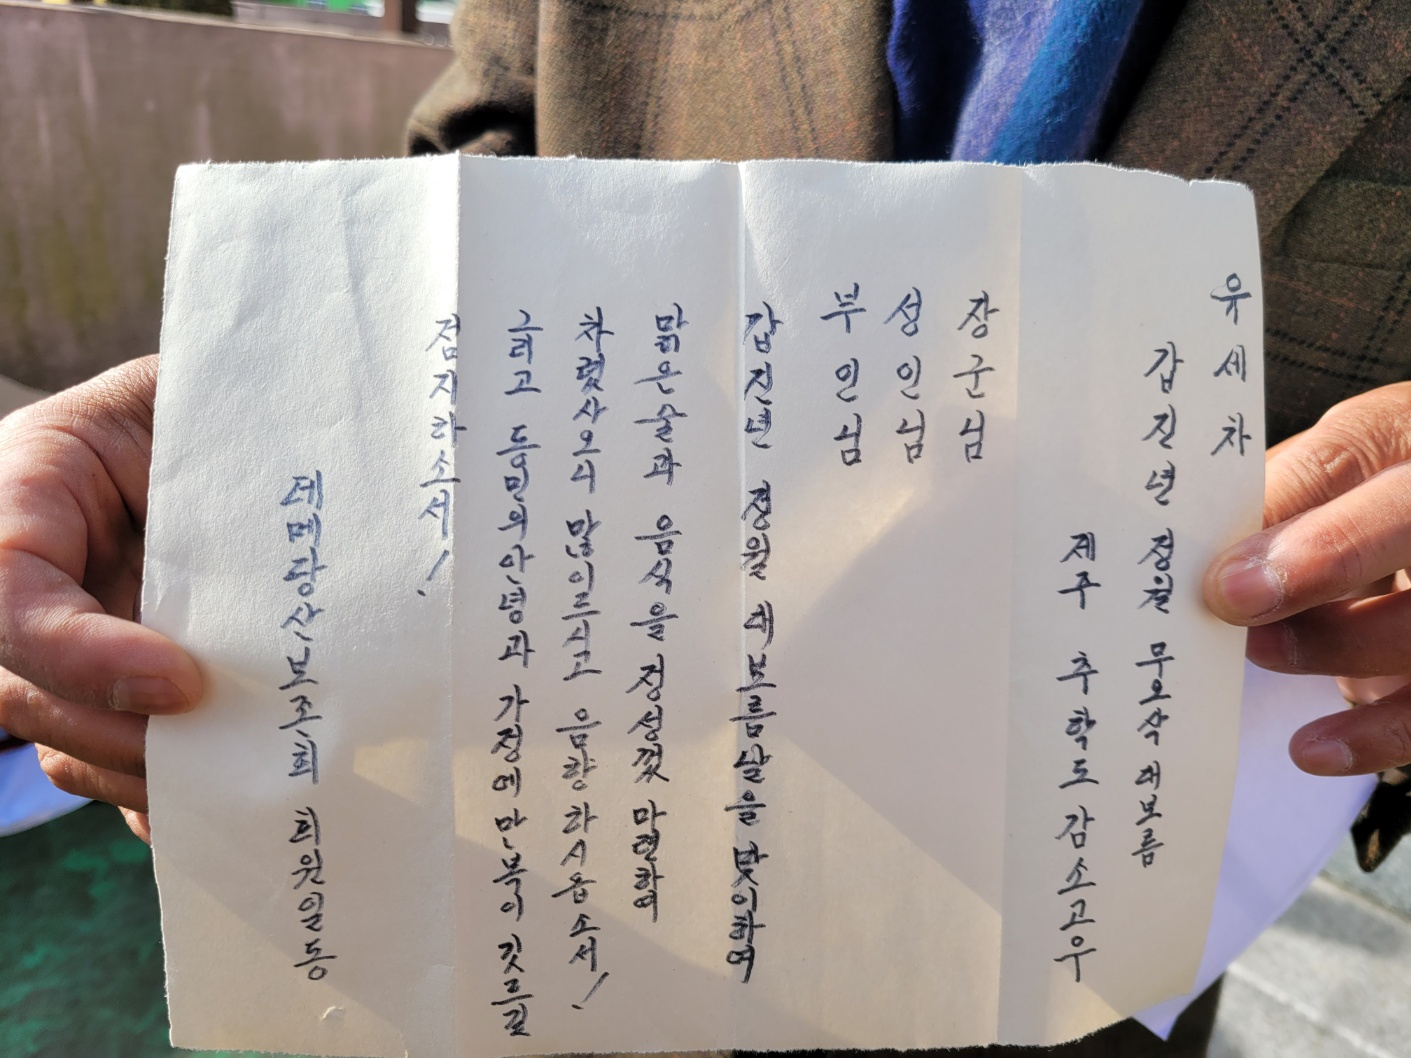 유세차
갑진년 정월 무오삭 대보름
제주 추학도 감소고우
장군님
성인님
부인님
갑진년 정월 대보름날을 맞이하여
맑은술과 음식을 정성껏 마련하여
차렸사오니 많이드시고 흠향하시옵소서!
그리고 동민의안녕과 가정에만복이 깃드길
점지하소서!
데메당산보조회 회원일동